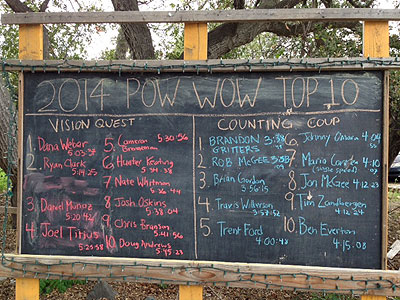 2014 POW WOW TOP 10
VISION QUEST
1. Dana Weber
5:03:54
2. Ryan Clark
5:14:25
3. Daniel Munoz
5:20:42
4. Joel Titius
5:25:58
5. Cameron
5:30:56
6. Hunter Keating
5:34:38
7 Nate Whitman
5:36:44
8 Josh Oskins
5:38:04
9 Chris Bragg
5:41:56
10 Doug Andrews
5:45:23
COUNTING COUP
1. BRANDON
GRITTERS
2. ROB McGEE
3. Brian Gordon
3:56:15
4. Travis Wilkerson
3:57:52
5. Trent Ford
4:00:48
6 Johnny Omara 4:04
7 Mario 4:10
8 Jon McGee 4:12
9 Tim Zandbergen
4:12:24
10. Ben Everton
4:15:08